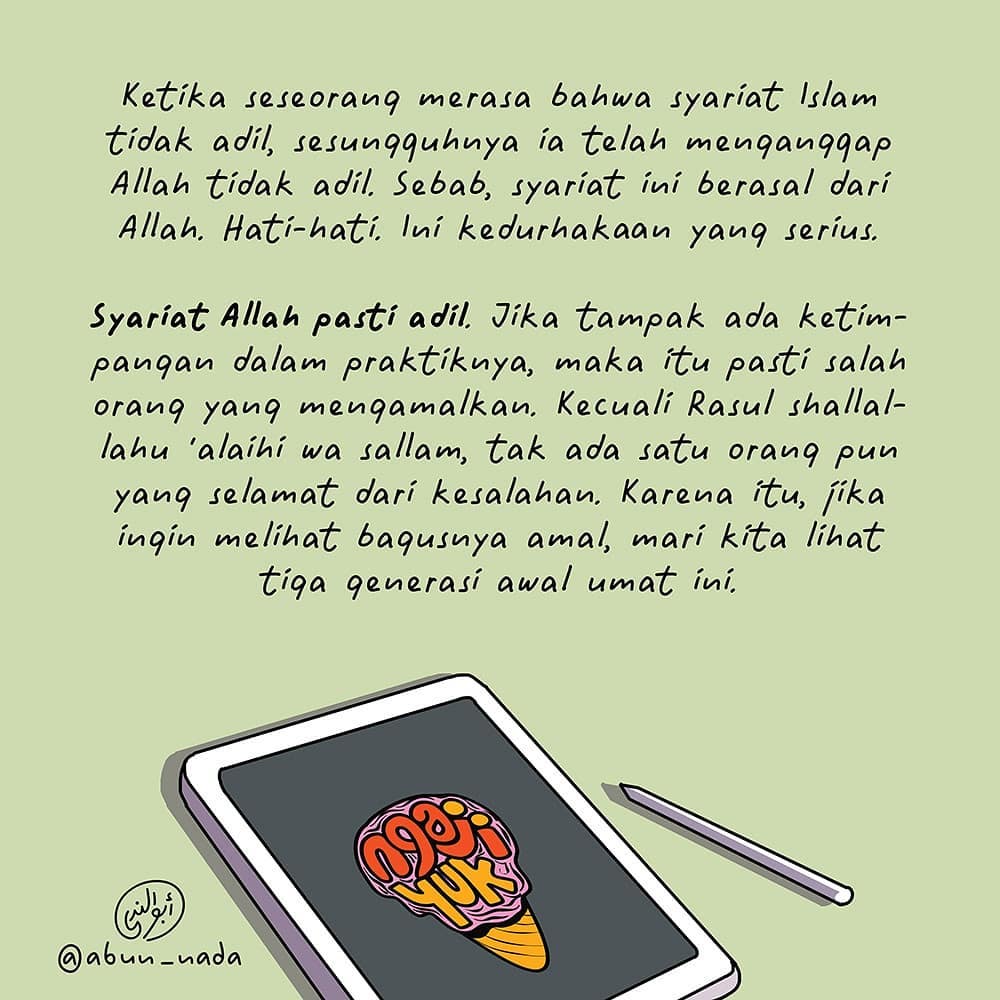 Ketika seseorang merasa bahwa syariat Islam
tidak adil, sesungguhnya ia telah menganggap
Allah tidak adil. Sebab, syariat ini berasal dari
Allah. Hati-hati. Ini kedurhakaan yang serius.
Syariat Allah pasti adil. Jika tampak ada ketim-
pangan dalam praktiknya, maka itu pasti salah
orang yang mengamalkan. Kecuali Rasul shallal-
lahu 'alaihi wa sallam, tak ada satu orang pun
yang selamat dari kesalahan. Karena itu, jika
ingin melihat bagusnya amal, mari kita lihat
tiga generasi awal umat ini.
ngaji
YUK
أبو الندى
@abun_nada